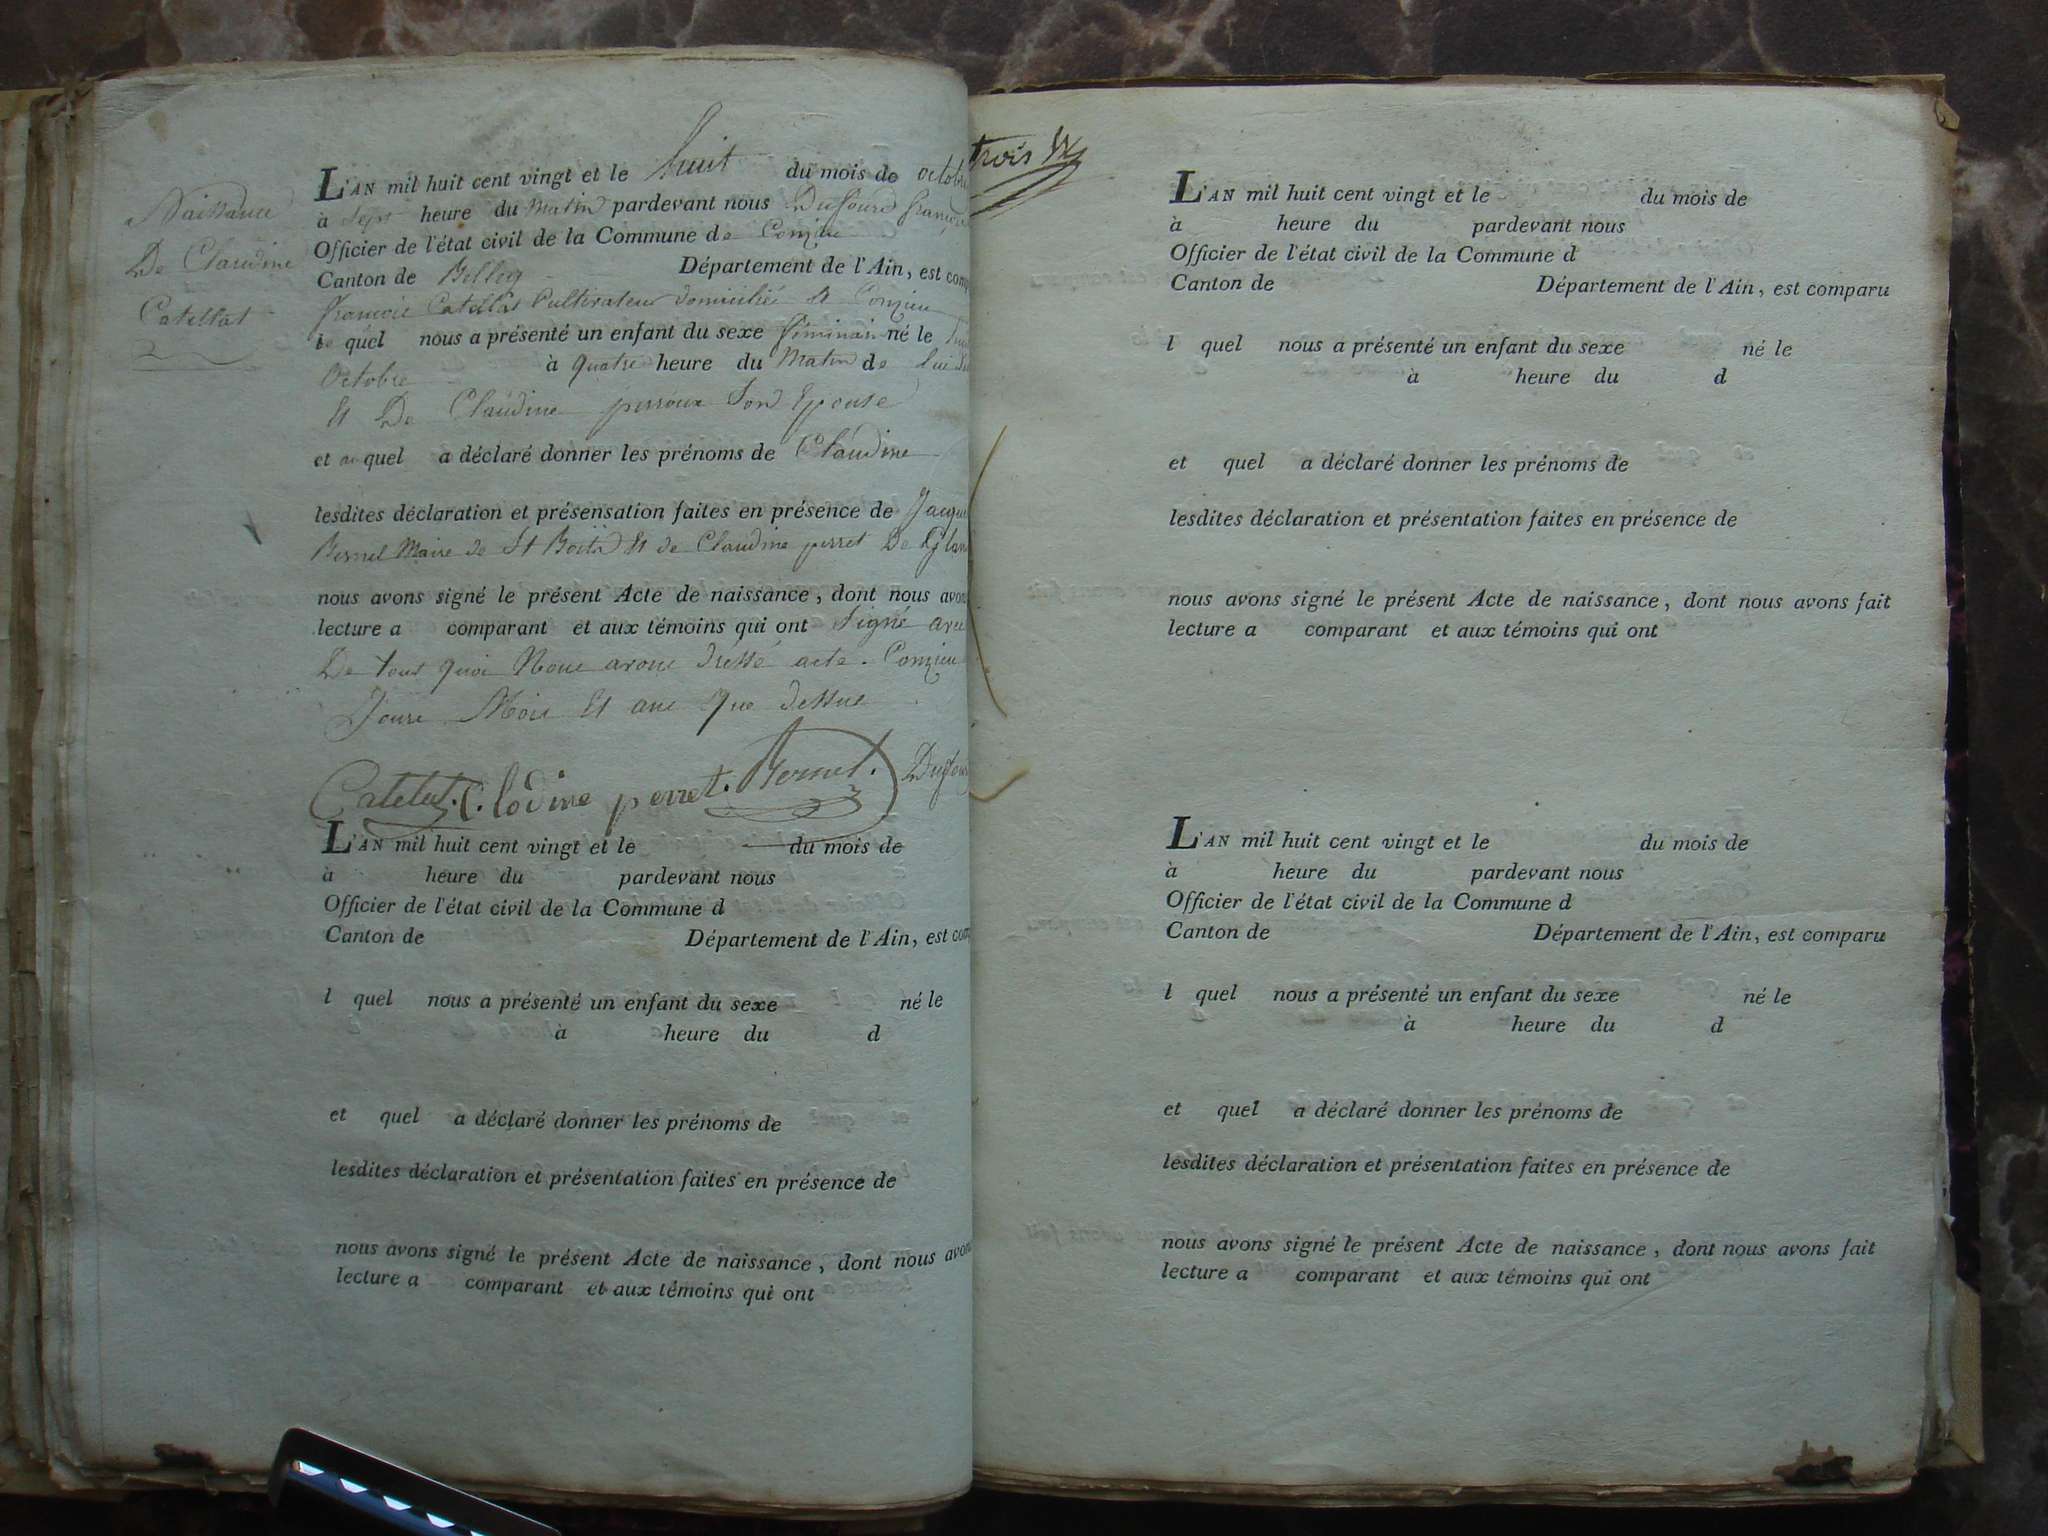 Naissance
De Claudine
Catillat
L'AN mil huit cent vingt et le huit du mois de octobre
à sept heure du Matin pardevant nous Duffour françois
Officier de l'état civil de la Commune de Conzieu
Canton de Belley Département de l'Ain, est comp
françois Catillat Cultivateur domicilié à Conzieu
le quel nous a présenté un enfant du sexe féminin né le huit
Octobre à quatre heure du Matin de lui
Et De Claudine perroux Son Epouse
et auquel a déclaré donner les prénoms de Claudine
lesdites déclaration et présensation faites en présence de Jacque
Bernet Maire de St Et de Claudine perret De
nous avons signé le présent Acte de naissance, dont nous avon
lecture a comparant et aux témoins qui ont Signé avec
De tous quoi Nous avons dressé acte. Conzieu
Jours Mois Et ans Que dessus
Catelat. Clodine perret. Bernet. Duffour
L'AN mil huit cent vingt et le du mois de
à heure du pardevant nous
Officier de l'état civil de la Commune d
Canton de Département de l'Ain, est comp
l quel nous a présenté un enfant du sexe né le
à heure du d
et quel a déclaré donner les prénoms de
lesdites déclaration et présentation faites en présence de
nous avons signé le présent Acte de naissance, dont nous avon
lecture a comparant et aux témoins qui ont
trois
L'AN mil huit cent vingt et le du mois de
à heure du pardevant nous
Officier de l'état civil de la Commune d
Canton de Département de l'Ain, est comparu
l quel nous a présenté un enfant du sexe né le
à heure du d
et quel a déclaré donner les prénoms de
lesdites déclaration et présentation faites en présence de
nous avons signé le présent Acte de naissance, dont nous avons fait
lecture a comparant et aux témoins qui ont
L'AN mil huit cent vingt et le du mois de
à heure du pardevant nous
Officier de l'état civil de la Commune d
Canton de Département de l'Ain, est comparu
l quel nous a présenté un enfant du sexe né le
à heure du d
et quel a déclaré donner les prénoms de
lesdites déclaration et présentation faites en présence de
nous avons signé le présent Acte de naissance, dont nous avons fait
lecture a comparant et aux témoins qui ont